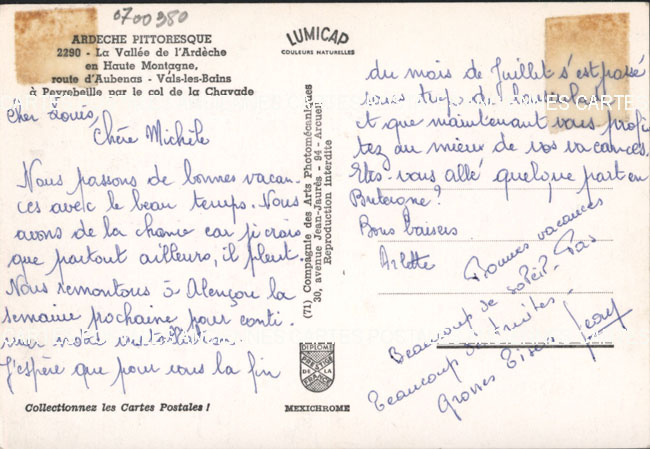 0700980
ARDECHE PITTORESQUE
2290 - La Vallée de l'Ardèche
en Haute Montagne,
route d'Aubenas - Vals-les-Bains
à Peyrebeille par le col de la Chavade
LUMICAP
COULEURS NATURELLES
Cher Louis
Chère Michèle
Nous passons de bonnes vacan-
ces avec le beau temps. Nous
avons de la chance car je crois
que partout ailleurs, il pleut.
Nous remontons à Alençon la
semaine prochaine pour conti-
nuer notre installation.
J'espère que pour vous la fin
Collectionnez les Cartes Postales !
(71) Compagnie des Arts Photomécaniques
30, avenue Jean-Jaurès - 94 - Arcueil
Reproduction interdite
DIPLOME
PRESTIGE
DE LA
FRANCE
MEXICHROME
du mois de Juillet s'est passé
sans trop de
et que maintenant vous profi-
tez au mieux de vos vacances.
Etes-vous allé quelque part en
Bretagne?
Bons baisers
Arlette
Bonnes vacances
Beaucoup de soleil - Pas
Beaucoup de truites.
Grosses Bises
Jean